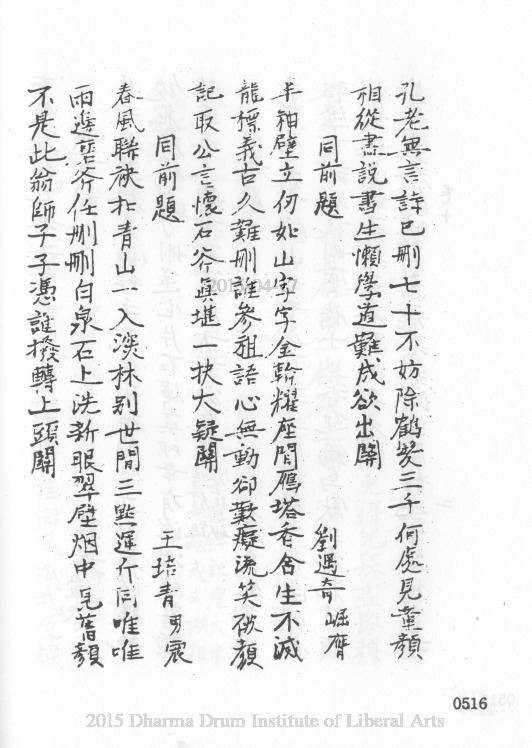 孔老無言詩已刪七十不妨除鶴髮三千何處見童顏
相從盡說書生懶學道難成欲出關
同前題 劉遇奇
半袖壁立仞如山字字金幹耀座間鴈塔香舍生不滅
龍標義古久難刪誰參祖語心無動卻歎癡流笑破顏
記取公言懷石斧真堪一抉大疑關
同前題 王培青
春風聯袂在青山一入淡林別世間三點運斤同唯唯
兩邊碧斧任刪刪白泉石上洗新眼翠壁烟中見舊顏
不是此翁師子子憑誰撥轉上頭關
0516
2015 Dharma Drum Institute of Liberal Arts